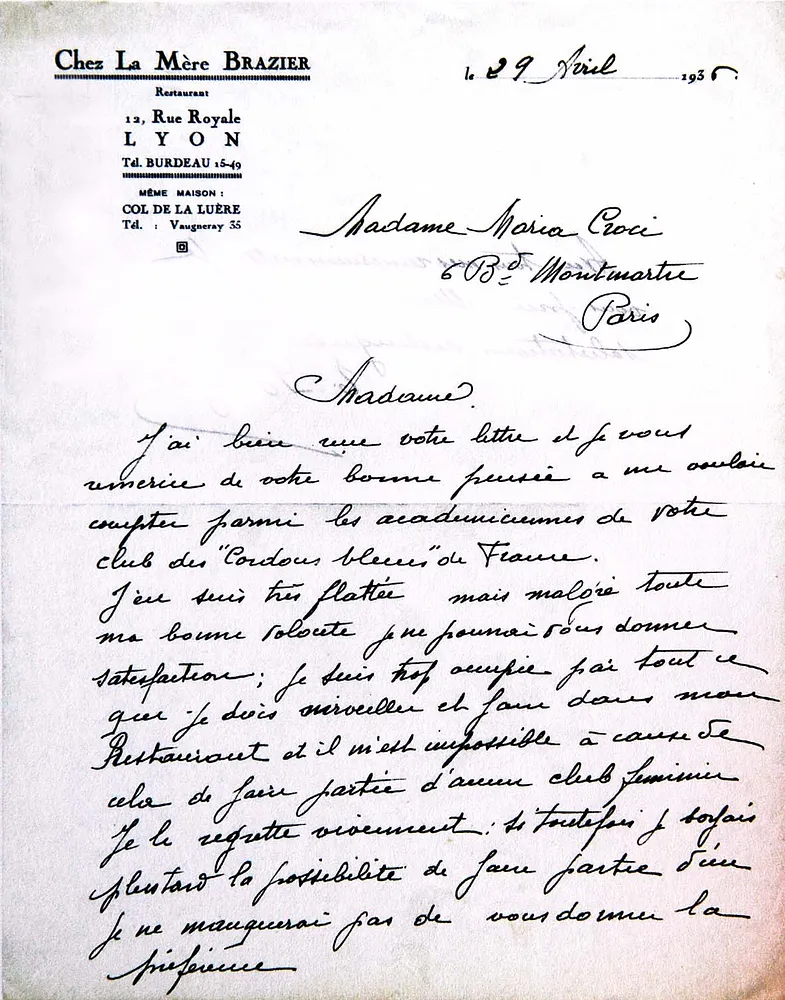 Chez La Mère BRAZIER
Restaurant
12, Rue Royale
LYON
Tél. BURDEAU 15-49
MÊME MAISON :
COL DE LA LUÈRE
Tél. : Vaugneray 35
le 29 Avril 1936.
Madame Maria Croci
6 Bd Montmartre
Paris
Madame
J'ai bien reçue votre lettre et je vous
remercie de votre bonne pensée a me vouloir
compter parmi les academiciennes de votre
club des "Cordons bleus" de France.
J'en suis très flattée mais malgré toute
ma bonne volonte je ne pourrai vous donner
satisfaction ; je suis trop occupée par tout ce
que je dois surveiller et faire dans mon
Restaurant et il m'est impossible à cause de
cela de faire partie d'aucun club feminin
Je le regrette vivement ; si toutefois je voyais
plustard la possibilité de faire partie d'un
je ne manquerai pas de vous donner la
préférence